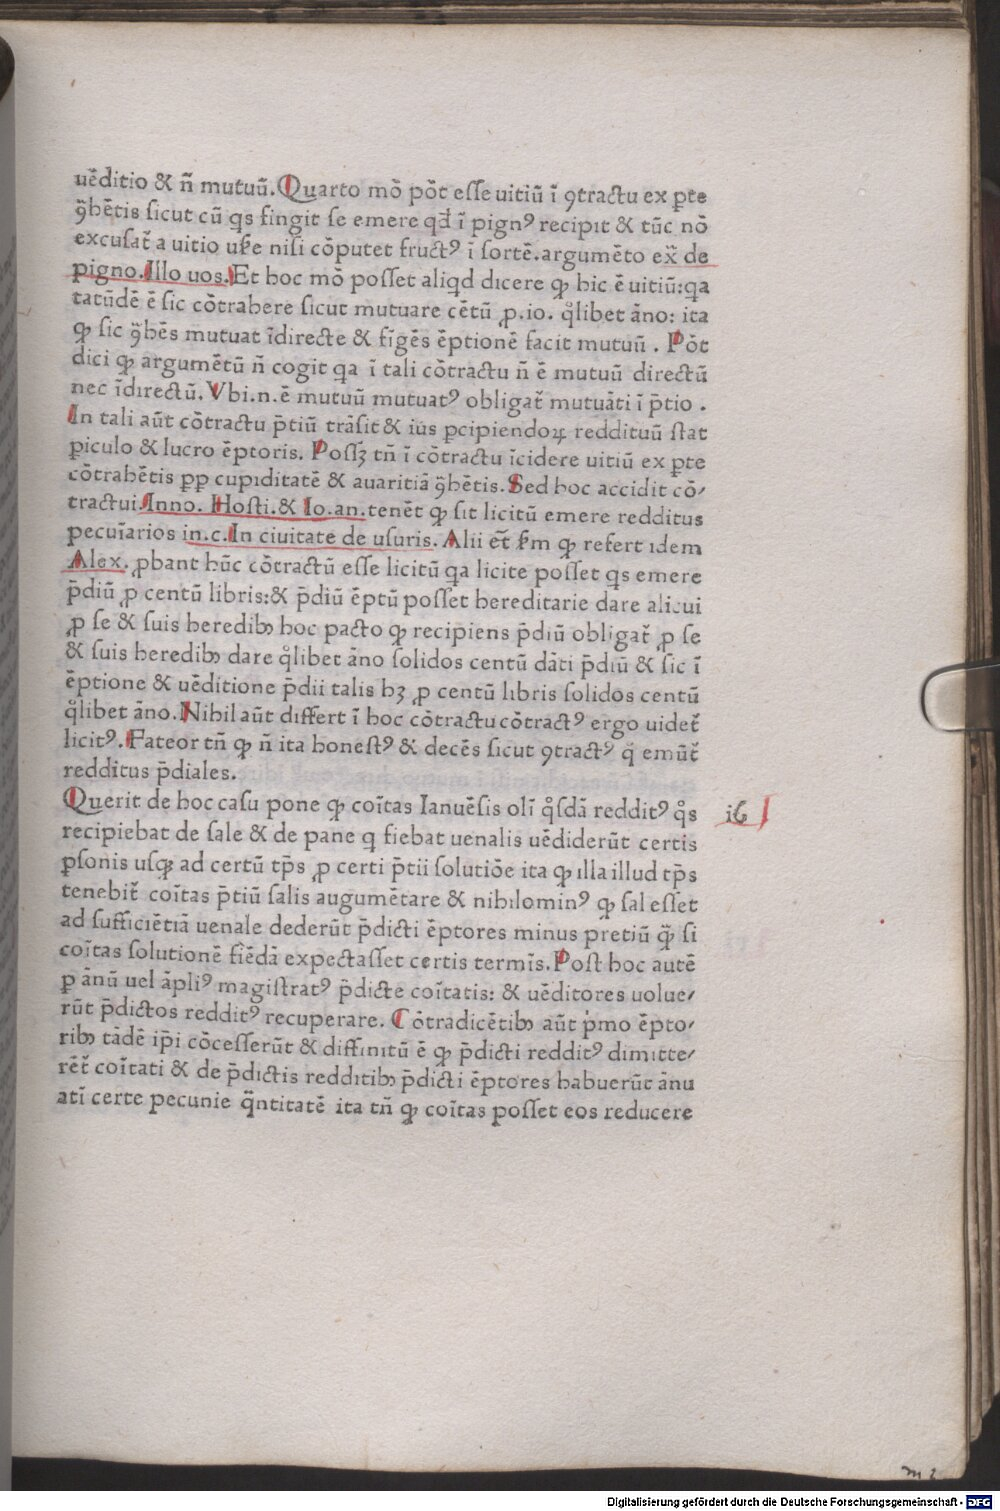 uēditio & n̄ mutuū. Quarto mō pōt esse uitiū ī ꝯtractu ex ꝑte
ꝯ̄hētis sicut cū qs fingit se emere qđ ī pignꝰ recipit & tūc nō
excusat̄ a uitio usr̄e nisi cōputet fructꝰ ī sortē. argumēto ex̄ de
pigno. Illo uos. Et hoc mō posset aliqd dicere ꝙ hic ē uitiū: qa
tatūdē ē sic cōtrahere sicut mutuare cētū ꝓ .io. qͦlibet āno: ita
ꝙ sic ꝯ̄hēs mutuat īdirecte & fīgēs ēptionē facit mutuū . Pōt
dici ꝙ argumētū n̄ cogit qa ī tali cōtractu n̄ ē mutuū directū
nec īdirectū. Vbi .n. ē mutuū mutuatꝰ obligat̄ mutuāti ī p̄tio .
In tali aūt cōtractu p̄tiū trāsit & ius ꝑcipiendoꝝ reddituū stat
ꝑiculo & lucro ēptoris. Possꝫ tn̄ ī cōtractu īcidere uitiū ex ꝑte
cōtrahētis ꝓp cupiditatē & auaritiā ꝯ̄hētis. Sed hoc accidit cō/
tractui. Inno. Hosti. & Io. an. tenēt ꝙ sit licitū emere redditus
pecuīarios in .c. In ciuitate de usuris. Alii et̄ ẜm ꝙ refert idem
Alex. ꝓbant hūc cōtractū esse licitū qa licite posset qs emere
p̄diū ꝓ centū libris: & p̄diū ēptū posset hereditarie dare alicui
ꝓ se & suis heredibꝫ hoc pacto ꝙ recipiens p̄diū obligat̄ ꝓ se
& suis heredibꝫ dare qͦlibet āno solidos centū dāti p̄diū & sic ī
ēptione & uēditione p̄dii talis hꝫ ꝓ centū libris solidos centū
qͦlibet āno. Nihil aūt differt ī hoc cōtractu cōtractꝰ ergo uidet̄
licitꝰ. Fateor tn̄ ꝙ n̄ ita honestꝰ & decēs sicut ꝯtractꝰ q̄ emūt̄
redditus p̄diales.
Querit de hoc casu pone ꝙ coītas Ianuēsis olī qͦsdā redditꝰ qͦs
recipiebat de sale & de pane q fiebat uenalis uēdiderūt certis
ꝑsonis usqꝫ ad certū tp̄s ꝓ certi p̄tii solutiōe ita ꝙ illa illud tp̄s
tenebit̄ coītas p̄tiū salis augumētare & nihilominꝰ ꝙ sal esset
ad sufficiētiā uenale dederūt p̄dicti ēptores minus pretiū q̄ꝫ si
coītas solutionē fiēdā expectasset certis termīs. Post hoc autē
ꝑ ānū uel āpliꝰ magistratꝰ p̄dicte coītatis: & uēditores uolue/
rūt p̄dictos redditꝰ recuperare. Cōtradicētibꝫ aūt pͥmo ēpto/
ribꝫ tādē ip̄i cōcesserūt & diffinitū ē ꝙ p̄dicti redditꝰ dimitte/
rēt̄ coītati & de p̄dictis redditibꝫ p̄dicti ēptores habuerūt ānu
atī certe pecunie q̄ntitatē ita tn̄ ꝙ coītas posset eos reducere
i6
m 2
Digitalisierung gefördert durch die Deutsche Forschungsgemeinschaft - DFG